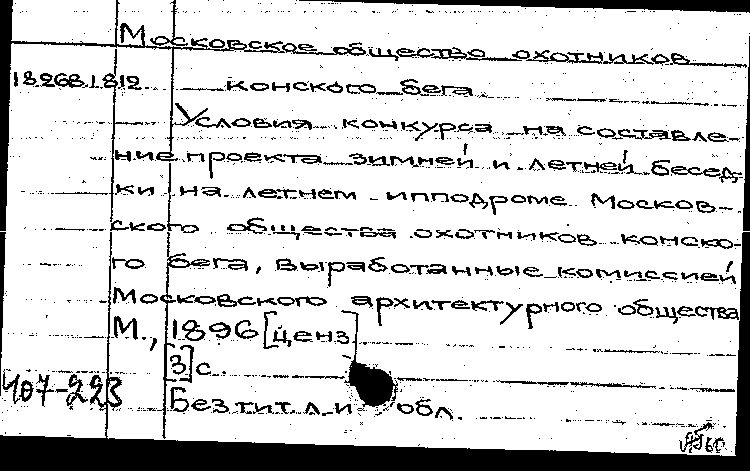 Московское общество охотников
18268.1.812 конского бега.
Условия конкурса на составле-
ние проекта зимней и летней бесед-
ки на летнем ипподроме Москов-
ского общества охотников конско-
го бега, выработанные комиссией
Московского архитектурного общества
М., 1896 [ценз]
[3] с.
407-223
Без тит. л. и обл.